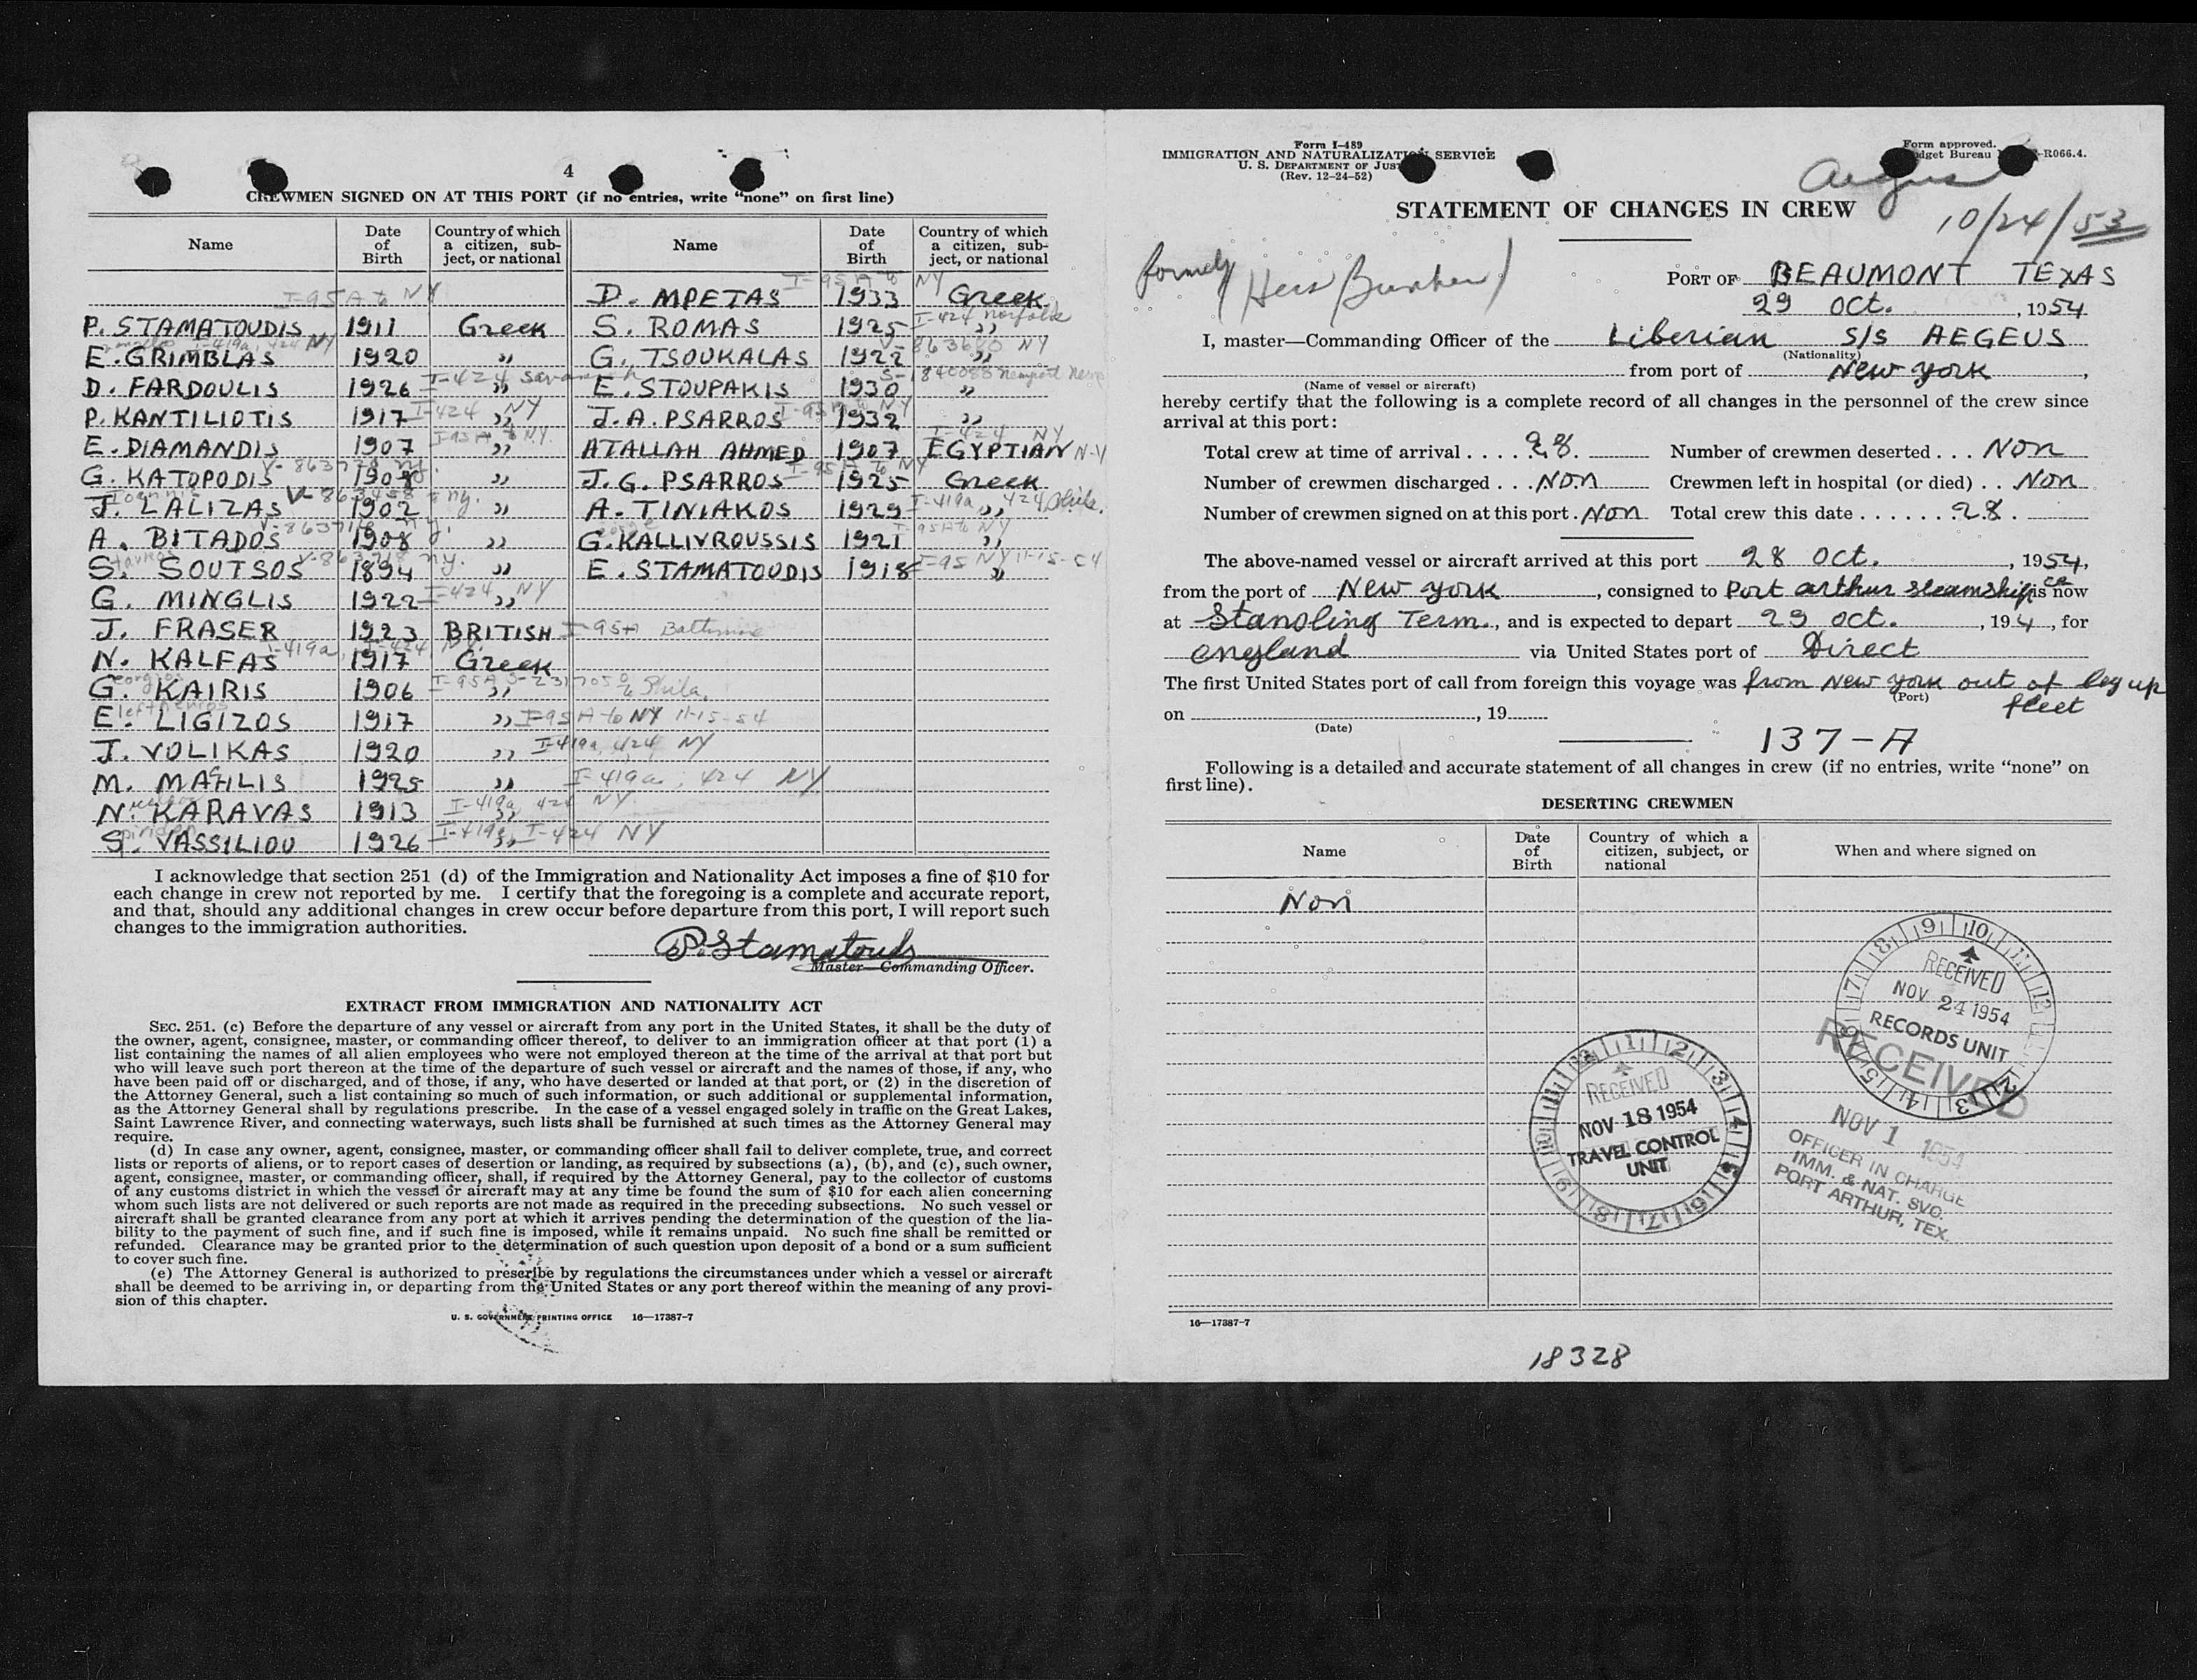 4
CREWMEN SIGNED ON AT THIS PORT (if no entries, write "none" on first line)
Name Date of Birth Country of which a citizen, subject, or national Name Date of Birth Country of which a citizen, subject, or national
I-95A to NY
I-95A to NY
D. MPETAS 1933 Greek
P. STAMATOUDIS 1911 Greek S. ROMAS 1925 I-424 Norfolk ,,
I-419a, 424 NY
E. GRIMBLAS 1920 ,, G. TSOUKALAS 1922 V-863680 NY ,,
D. FARDOULIS 1926 I-424 Savannah ,, E. STOUPAKIS 1930 S-1840088 Newport News ,,
P. KANTILIOTIS 1917 I-424 NY ,, J. A. PSARROS 1932 I-95A NY ,,
E. DIAMANDIS 1907 I-95A to NY. ,, ATALLAH AHMED 1907 I-424 NY EGYPTIAN N-Y
G. KATOPODIS 1908 ,, J. G. PSARROS 1925 I-95A to NY Greek
Ioannis
J. LALIZAS 1902 ,, A. TINIAKOS 1929 I-419a, 424 Phila. ,,
A. BITADOS 1908 ,, G. KALLIVROUSSIS 1921 I-95A to NY ,,
S. SOUTSOS 1894 ,, E. STAMATOUDIS 1918 I-95 NY 11-15-54 ,,
G. MINGLIS 1922 I-424 NY ,,
J. FRASER 1923 BRITISH I-95A Baltimore
N. KALFAS I-419a, I-424 NY. 1917 Greek
G. KAIRIS 1906 ,, Phila.
E. LIGIZOS 1917 ,, I-95A to NY 11-15-54
J. VOLIKAS 1920 ,, I-419a, 424 NY
M. MAHLIS 1925 ,, I-419a, 424 NY
N. KARAVAS 1913 I-419a, 424 NY. ,,
S. VASSILIOU 1926 I-419a, I-424 NY ,,
I acknowledge that section 251 (d) of the Immigration and Nationality Act imposes a fine of $10 for
each change in crew not reported by me. I certify that the foregoing is a complete and accurate report,
and that, should any additional changes in crew occur before departure from this port, I will report such
changes to the immigration authorities.
P. Stamatouds
Master—Commanding Officer.
EXTRACT FROM IMMIGRATION AND NATIONALITY ACT
SEC. 251. (c) Before the departure of any vessel or aircraft from any port in the United States, it shall be the duty of
the owner, agent, consignee, master, or commanding officer thereof, to deliver to an immigration officer at that port (1) a
list containing the names of all alien employees who were not employed thereon at the time of the arrival at that port but
who will leave such port thereon at the time of the departure of such vessel or aircraft and the names of those, if any, who
have been paid off or discharged, and of those, if any, who have deserted or landed at that port, or (2) in the discretion of
the Attorney General, such a list containing so much of such information, or such additional or supplemental information,
as the Attorney General shall by regulations prescribe. In the case of a vessel engaged solely in traffic on the Great Lakes,
Saint Lawrence River, and connecting waterways, such lists shall be furnished at such times as the Attorney General may
require.
(d) In case any owner, agent, consignee, master, or commanding officer shall fail to deliver complete, true, and correct
lists or reports of aliens, or to report cases of desertion or landing, as required by subsections (a), (b), and (c), such owner,
agent, consignee, master, or commanding officer, shall, if required by the Attorney General, pay to the collector of customs
of any customs district in which the vessel or aircraft may at any time be found the sum of $10 for each alien concerning
whom such lists are not delivered or such reports are not made as required in the preceding subsections. No such vessel or
aircraft shall be granted clearance from any port at which it arrives pending the determination of the question of the lia-
bility to the payment of such fine, and if such fine is imposed, while it remains unpaid. No such fine shall be remitted or
refunded. Clearance may be granted prior to the determination of such question upon deposit of a bond or a sum sufficient
to cover such fine.
(e) The Attorney General is authorized to prescribe by regulations the circumstances under which a vessel or aircraft
shall be deemed to be arriving in, or departing from the United States or any port thereof within the meaning of any provi-
sion of this chapter.
U. S. GOVERNMENT PRINTING OFFICE 16—17387-7
Form I-489
IMMIGRATION AND NATURALIZATION SERVICE
U. S. DEPARTMENT OF JUST
(Rev. 12-24-52)
Form approved.
dget Bureau -R066.4.
Aegus
STATEMENT OF CHANGES IN CREW
10/24/53
formerly
PORT OF BEAUMONT TEXAS
29 Oct., 1954
I, master—Commanding Officer of the Liberian S/S AEGEUS
(Nationality)
from port of New York,
(Name of vessel or aircraft)
hereby certify that the following is a complete record of all changes in the personnel of the crew since
arrival at this port:
Total crew at time of arrival . . . . 28. Number of crewmen deserted . . . Non
Number of crewmen discharged . . . Non Crewmen left in hospital (or died) . . Non
Number of crewmen signed on at this port . Non Total crew this date . . . . . . . 28.
The above-named vessel or aircraft arrived at this port 28 Oct., 1954,
from the port of New York, consigned to Port Arthur Steamship co is now
at Stanoling Term., and is expected to depart 29 Oct., 194, for
England via United States port of Direct
The first United States port of call from foreign this voyage was from New York out of lay up
(Port)
fleet
on , 19
(Date)
137-A
Following is a detailed and accurate statement of all changes in crew (if no entries, write "none" on
first line).
DESERTING CREWMEN
Name Date of Birth Country of which a citizen, subject, or national When and where signed on
Non
RECEIVED
NOV 24 1954
RECORDS UNIT
RECEIVED
NOV 18 1954
TRAVEL CONTROL
UNIT
RECEIVED
NOV 1 1954
OFFICER IN CHARGE
IMM. & NAT. SVC.
PORT ARTHUR, TEX.
16—17387-7
18328